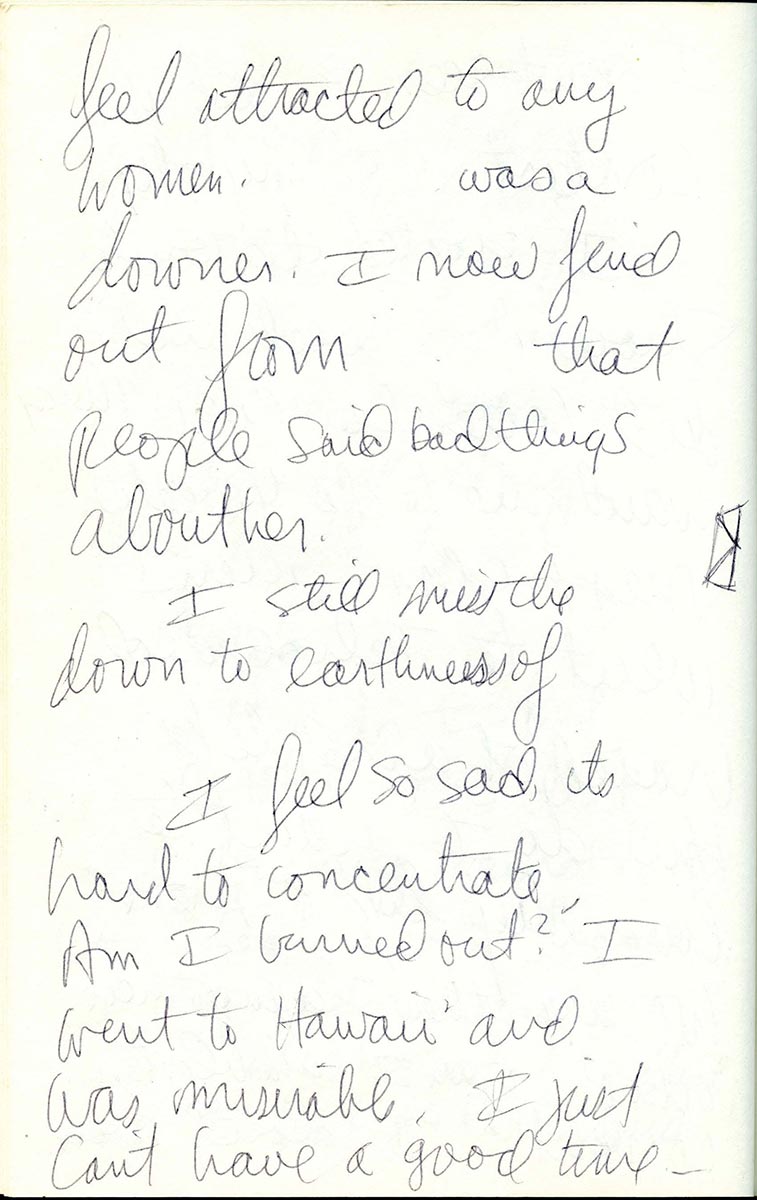 feel attracted to any
women. was a
downer. I now find
out from that
people said bad things
about her.
I still miss the
down to earthness of
I feel so sad, its
hard to concentrate,
Am I burned out? I
went to Hawaii and
was miserable. I just
can't have a good time—